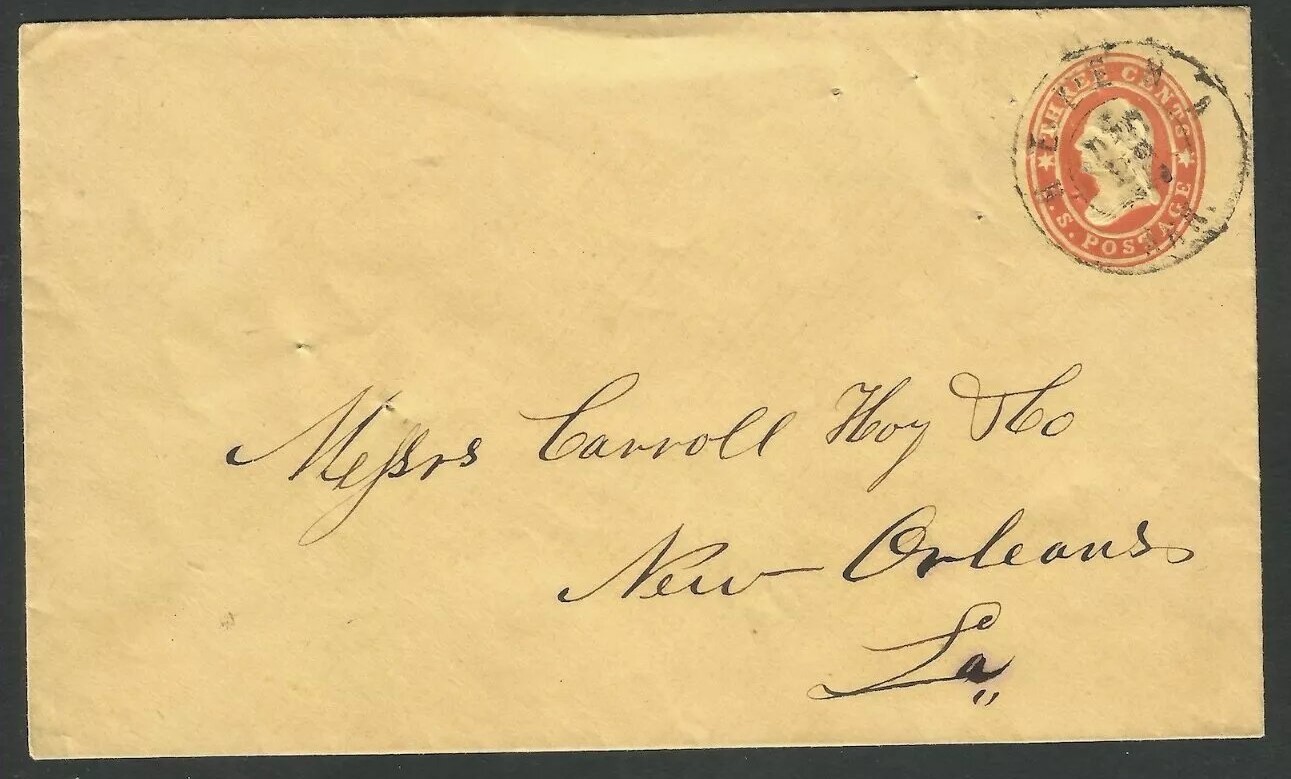 THREE CENTS
U.S. POSTAGE
HELENA
ARK.
Messrs Carroll Hoy & Co
New Orleans
La,,